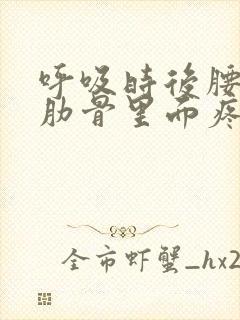 呼吸时后腰
肋骨里面疼
全市虾蟹_hx2